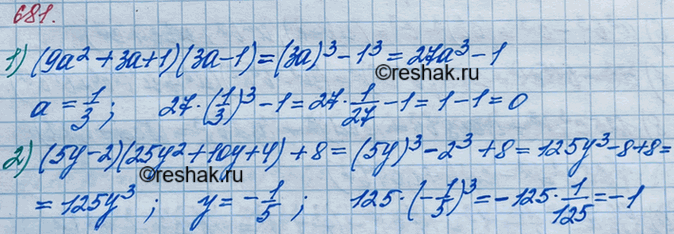 681.
1) (9a² + 3a + 1)(3a - 1) = (3a)³ - 1³ = 27a³ - 1
©reshak.ru
a = 1/3; 27·(1/3)³ - 1 = 27·1/27 - 1 = 1 - 1 = 0
2) (5y - 2)(25y² + 10y + 4) + 8 = (5y)³ - 2³ + 8 = 125y³ - 8 + 8 =
©reshak.ru
= 125y³; y = -1/5; 125·(-1/5)³ = -125·1/125 = -1